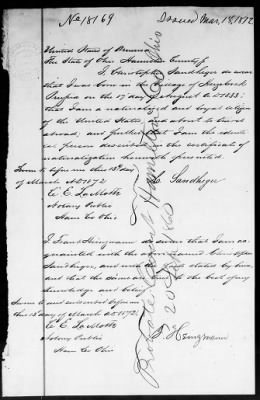 No 18169
Issued Mar. 18, 1872
United States of America
The State of Ohio Hamilton County ss
I, Christopher Sandheger do swear
that I was born in the village of
Prussia on the 17th day of August A.D. 1833;
that I am a naturalized and loyal citizen
of the United States, and about to travel
abroad; and further that I am the identi-
cal person described in the certificate of
naturalization herewith presented.
Sworn to before me this 15th day
of March A.D. 1872
C. Sandheger
C E LaMotte
Notary Public
Ham Co Ohio
I Franz Heingmann do swear that I am ac-
quainted with the above named Christopher
Sandheger, and with the facts stated by him,
and that the same are true to the best of my
knowledge and belief
Sworn to and subscribed before me
this 15th day of March A.D. 1872
F. Heingmann
C E LaMotte
Notary Public
Ham Co Ohio
Probate Court Hamilton Co Ohio